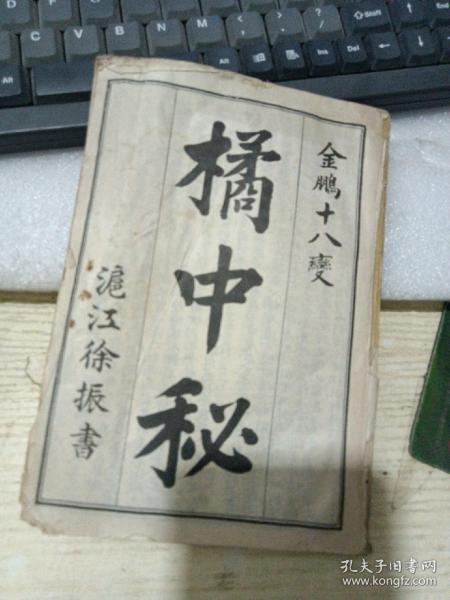 金鵬十八變
橘中秘
滬江徐振書
Shift
End
Alt
Ctrl
孔夫子旧书网
www.kongfz.com